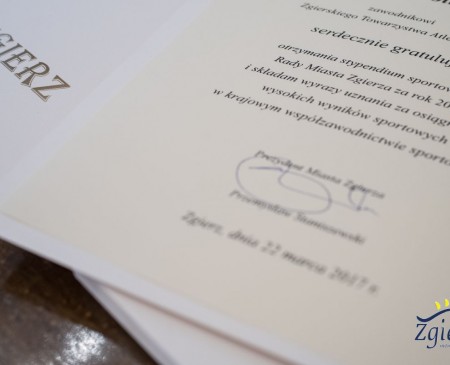 ZGIERZ
zawodnikowi
Zgierskiego Towarzystwa Atle
serdecznie gratuluj
otrzymania stypendium sportow
Rady Miasta Zgierza za rok 20
i składam wyrazy uznania za osiągn
wysokich wyników sportowych
w krajowym współzawodnictwie sporto
Prezydent Miasta Zgierza
Przemysław Staniszewski
Zgierz, dnia 22 marca 2017 r.
Zgie